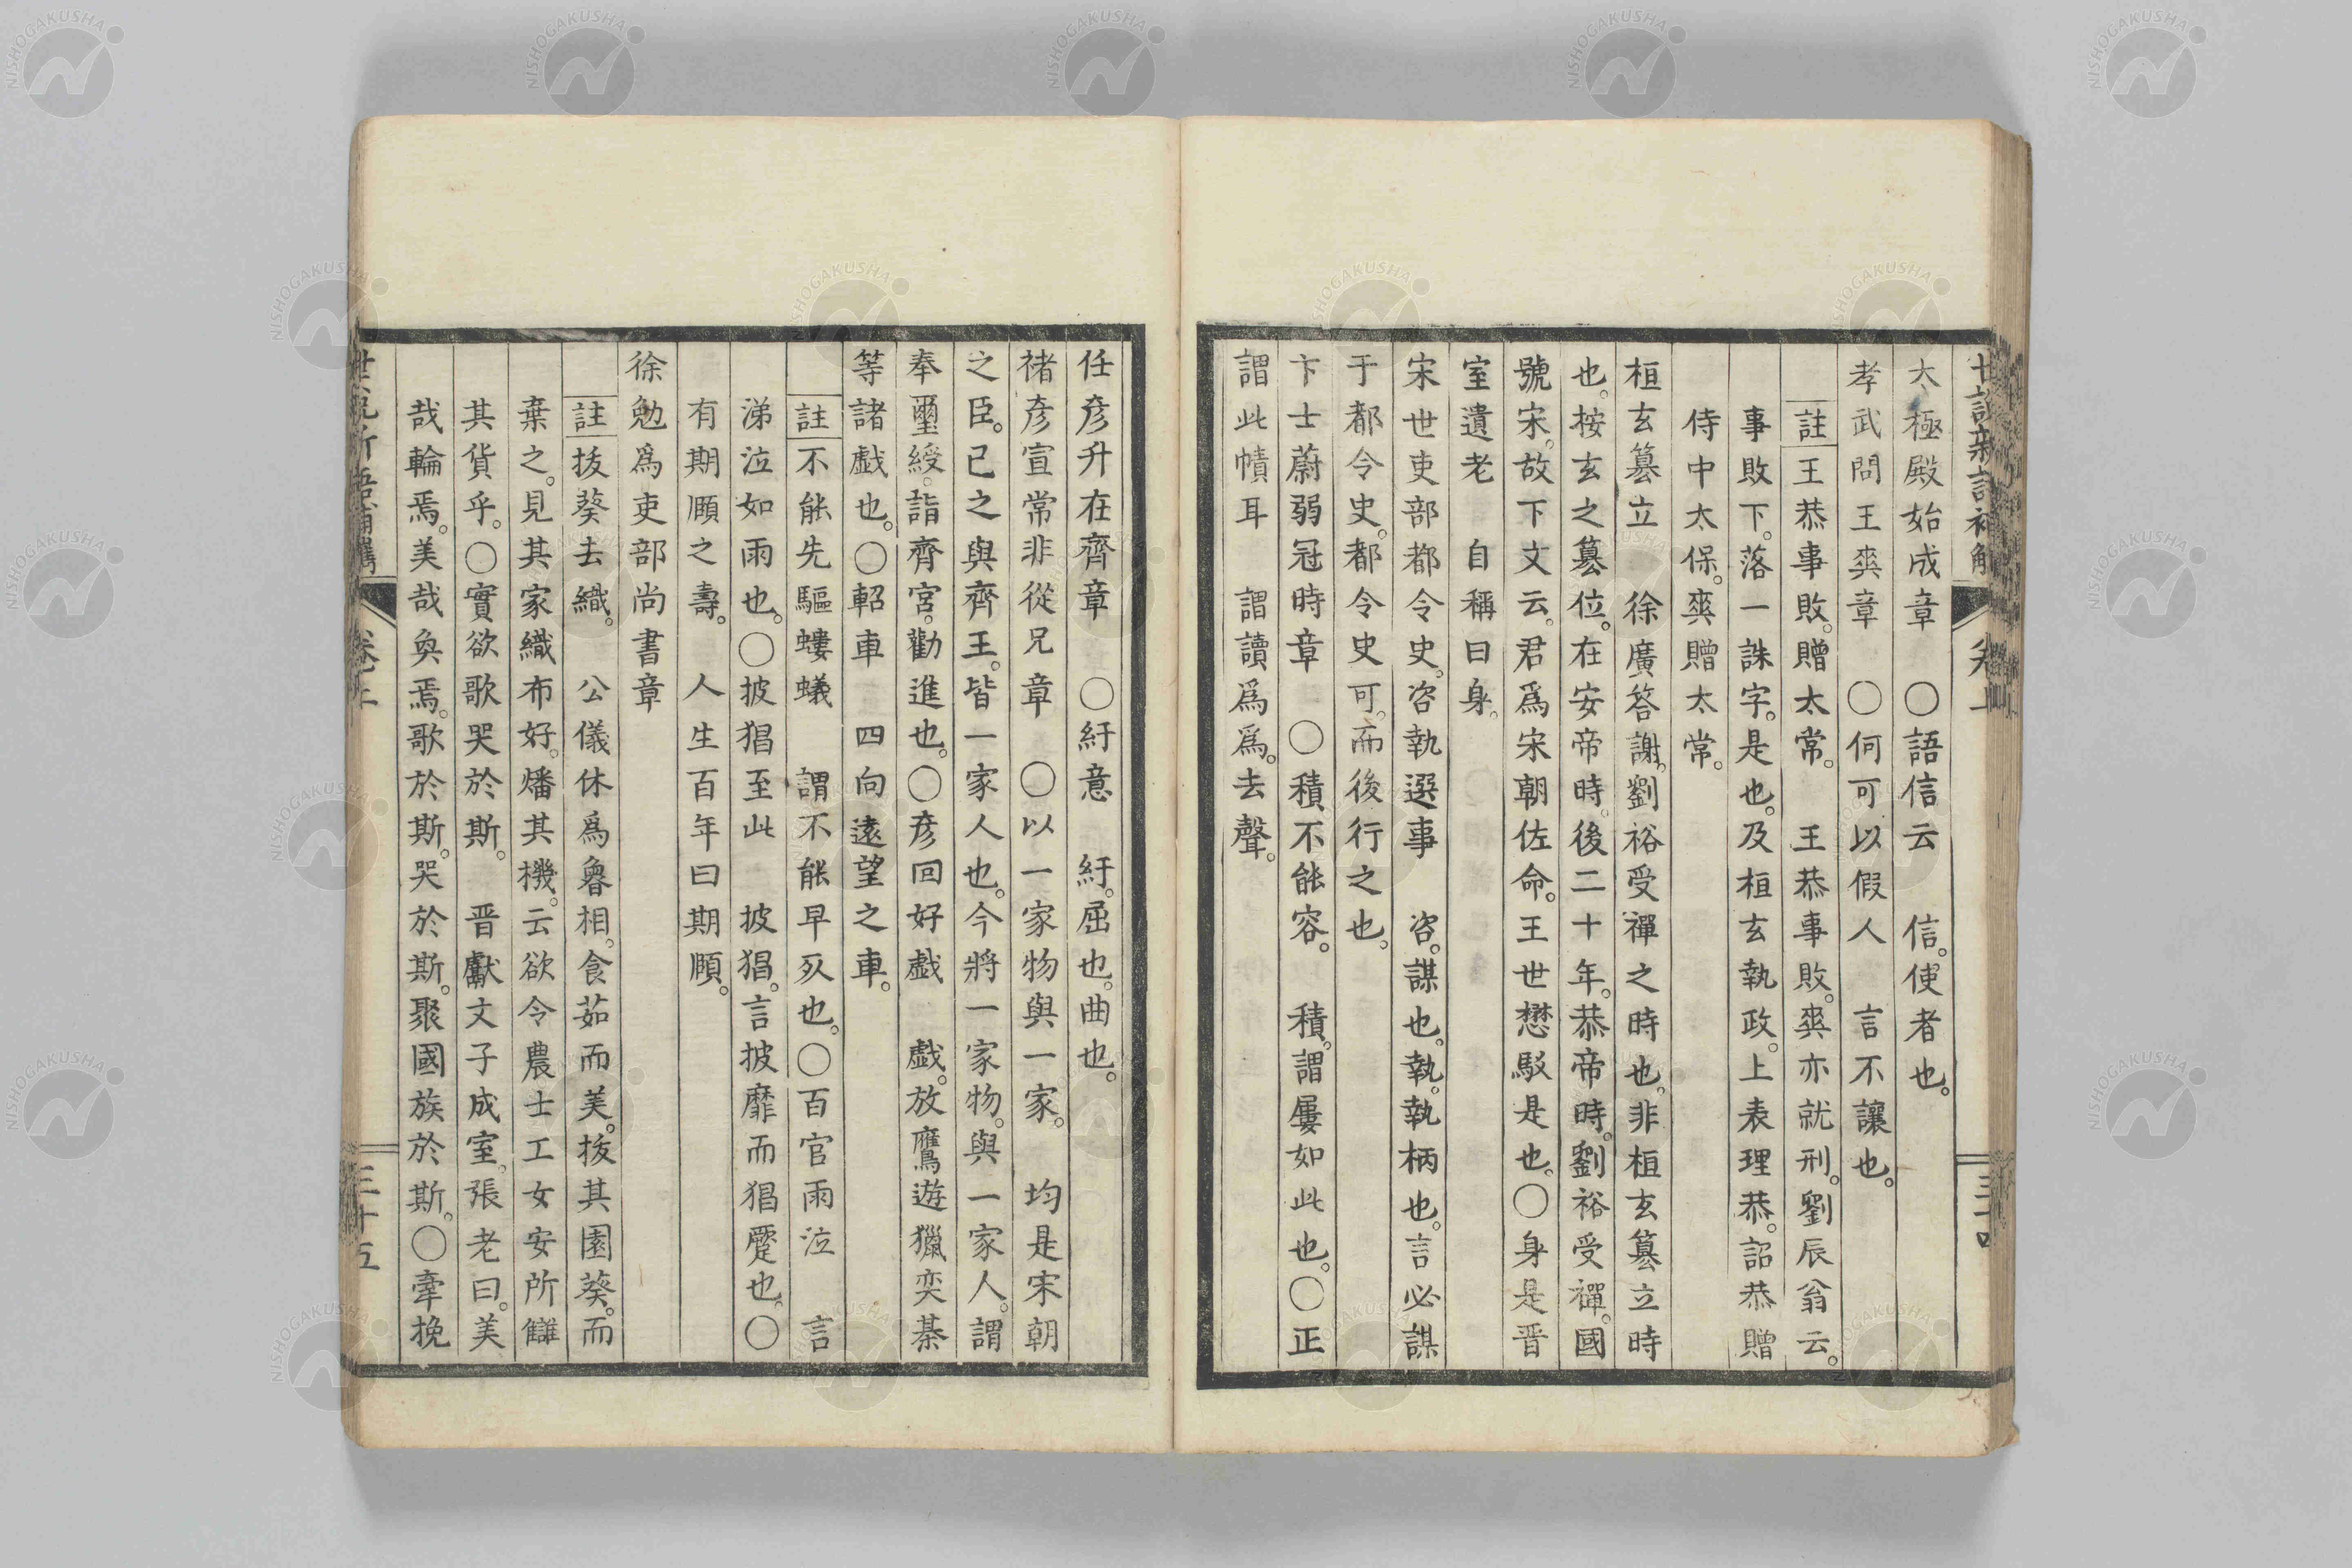 大極殿始成章　〇語信云　信。使者也。
孝武問王爽章　〇何可以假人　言不讓也。
註王恭事敗。贈太常。　王恭事敗。爽亦就刑。劉辰翁云。
事敗下。落一誅字。是也。及桓玄執政。上表理恭。詔恭贈
侍中太保。爽贈太常。
桓玄簒立　徐廣答謝。劉裕受禪之時也。非桓玄簒立時
也。按玄之簒位。在安帝時。後二十年。恭帝時。劉裕受禪。國
號宋。故下文云。君爲宋朝佐命。王世懋駁是也。〇身是晋
室遺老　自稱曰身。
宋世吏部都令史。咨執選事　咨。謀也。執。執柄也。言必謀
于都令史。都令史可。而後行之也。
卞士蔚弱冠時章　〇積不能容。　積。謂屢如此也。〇正
謂此幘耳　謂讀爲爲。去聲。
卷上
任彦升在齊章　〇紆意　紆。屈也。曲也。
褚彦宣常非從兄章　〇以一家物與一家。　均是宋朝
之臣。已之與齊王。皆一家人也。今將一家物。與一家人。謂
奉璽綬。詣齊宮。勸進也。〇彦回好戯　戯。放鷹遊獵奕棊
等諸戯也。〇軺車　四向遠望之車。
註不能先驅螻蟻　謂不能早死也。〇百官雨泣　言
涕泣如雨也。〇披猖至此　披猖。言披靡而猖蹷也。〇
有期頤之壽。　人生百年曰期頤。
徐勉爲吏部尚書章
註拔葵去織。　公儀休爲魯相。食茹而美。拔其園葵。而
棄之。見其家織布好。燔其機。云欲令農士工女安所讎
其貨乎。〇實欲歌哭於斯。　晋獻文子成室。張老曰。美
哉輪焉。美哉奐焉。歌於斯。哭於斯。聚國族於斯。〇牽挽
三十五
NISHOGAKUSHA